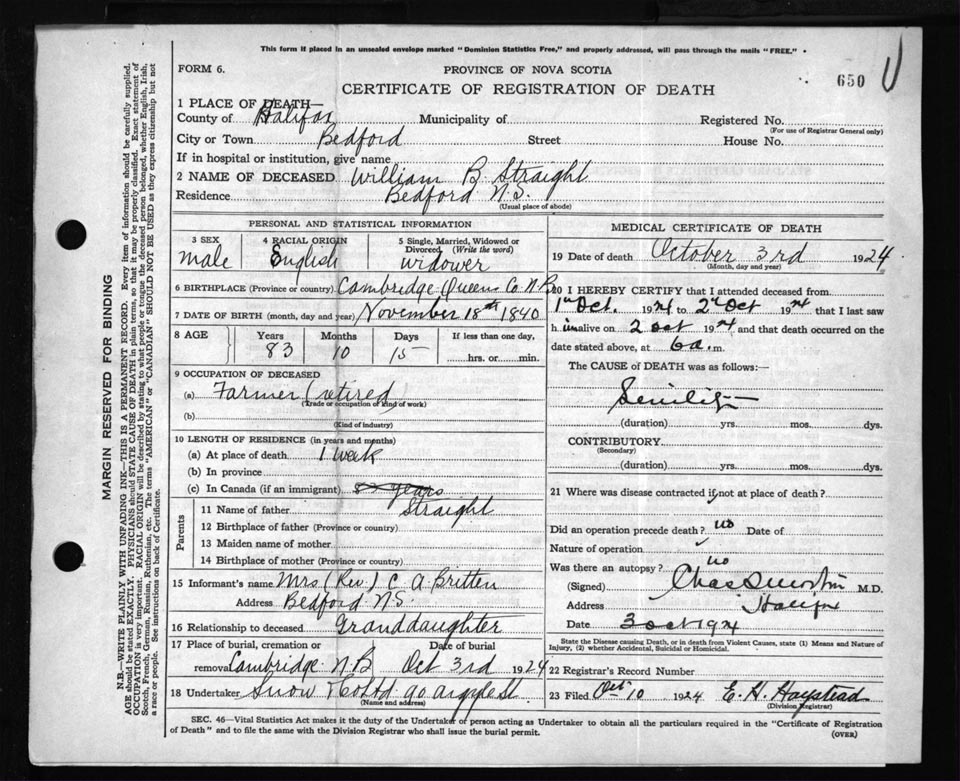 This form if placed in an unsealed envelope marked "Dominion Statistics Free," and properly addressed, will pass through the mails "FREE."
FORM 6.
PROVINCE OF NOVA SCOTIA
650
CERTIFICATE OF REGISTRATION OF DEATH
1 PLACE OF DEATH—
County of Halifax Municipality of Registered No.
(For use of Registrar General only)
City or Town Bedford Street House No.
If in hospital or institution, give name
2 NAME OF DECEASED William B. Straight
Residence Bedford N.S.
(Usual place of abode)
PERSONAL AND STATISTICAL INFORMATION
3 SEX
male
4 RACIAL ORIGIN
English
5 Single, Married, Widowed or Divorced (Write the word)
widower
6 BIRTHPLACE (Province or country) Cambridge Queens Co. N.B.
7 DATE OF BIRTH (month, day and year) November 18th 1840
8 AGE
Years Months Days If less than one day,
83 10 15 hrs. or min.
9 OCCUPATION OF DECEASED
(a) Farmer (retired)
(Trade or occupation or kind of work)
(b)
(Kind of industry)
10 LENGTH OF RESIDENCE (in years and months)
(a) At place of death 1 week
(b) In province
(c) In Canada (if an immigrant)
Parents
11 Name of father Straight
12 Birthplace of father (Province or country)
13 Maiden name of mother
14 Birthplace of mother (Province or country)
15 Informant's name Mrs (Rev.) C A Britten
Address Bedford N.S.
16 Relationship to deceased Granddaughter
17 Place of burial, cremation or Date of burial
removal Cambridge N.B Oct 3rd 1924
18 Undertaker Snow & Co Ltd 90 Argyle St
(Name and address)
MEDICAL CERTIFICATE OF DEATH
19 Date of death October 3rd 1924
(Month, day and year)
20 I HEREBY CERTIFY that I attended deceased from
1st Oct. 1924 to 2nd Oct 1924 that I last saw
h im alive on 2 Oct 1924 and that death occurred on
date stated above, at 6 a. m.
The CAUSE of DEATH was as follows:—
Senility
(duration) yrs. mos. dys.
CONTRIBUTORY
(Secondary)
(duration) yrs. mos. dys.
21 Where was disease contracted if not at place of death?
Did an operation precede death? no Date of
Nature of operation
Was there an autopsy? no
(Signed) Chas M.D.
Address Halifax
Date 3 Oct 1924
State the Disease causing Death, or in death from Violent Causes, state (1) Means and Nature of Injury, (2) whether Accidental, Suicidal or Homicidal.
22 Registrar's Record Number
23 Filed Oct 10 1924 E. H.
(Division Registrar)
SEC. 46—Vital Statistics Act makes it the duty of the Undertaker or person acting as Undertaker to obtain all the particulars required in the "Certificate of Registration
of Death" and to file the same with the Division Registrar who shall issue the burial permit.
(OVER)
MARGIN RESERVED FOR BINDING
N.B.—WRITE PLAINLY WITH UNFADING INK—THIS IS A PERMANENT RECORD. Every item of information should be carefully supplied.
AGE should be stated EXACTLY. PHYSICIANS should STATE CAUSE OF DEATH in plain terms, so that it may be properly classified. Exact statement of
OCCUPATION is very important. RACIAL ORIGIN will be described by stating to what people or tongue the deceased person belonged, whether English, Irish,
Scotch, French, German, Russian, Ruthenian, etc. The terms "AMERICAN" or "CANADIAN" SHOULD NOT BE USED as they express citizenship but not
a race or people. See instructions on back of Certificate.